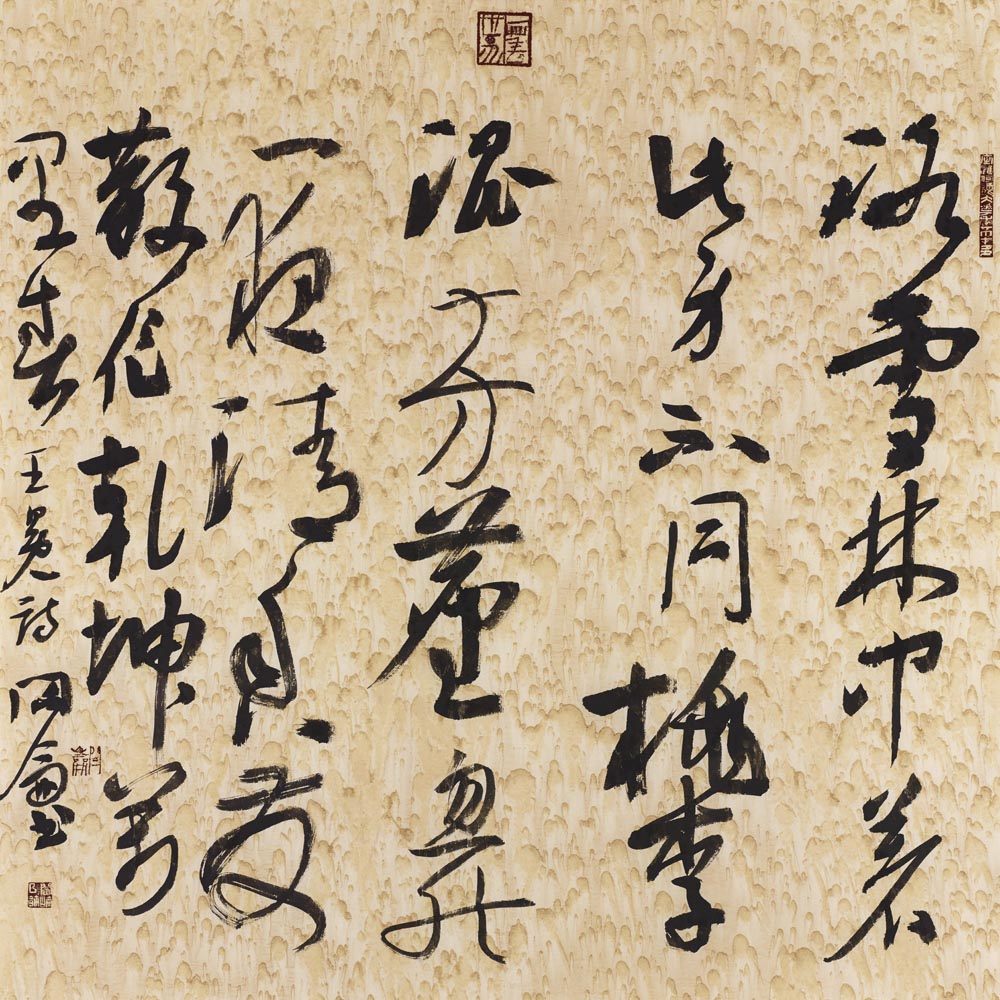 冰雪林中著
此身不同桃李
混芳塵忽然
一夜清香發
散作乾坤萬
里春 王冕詩